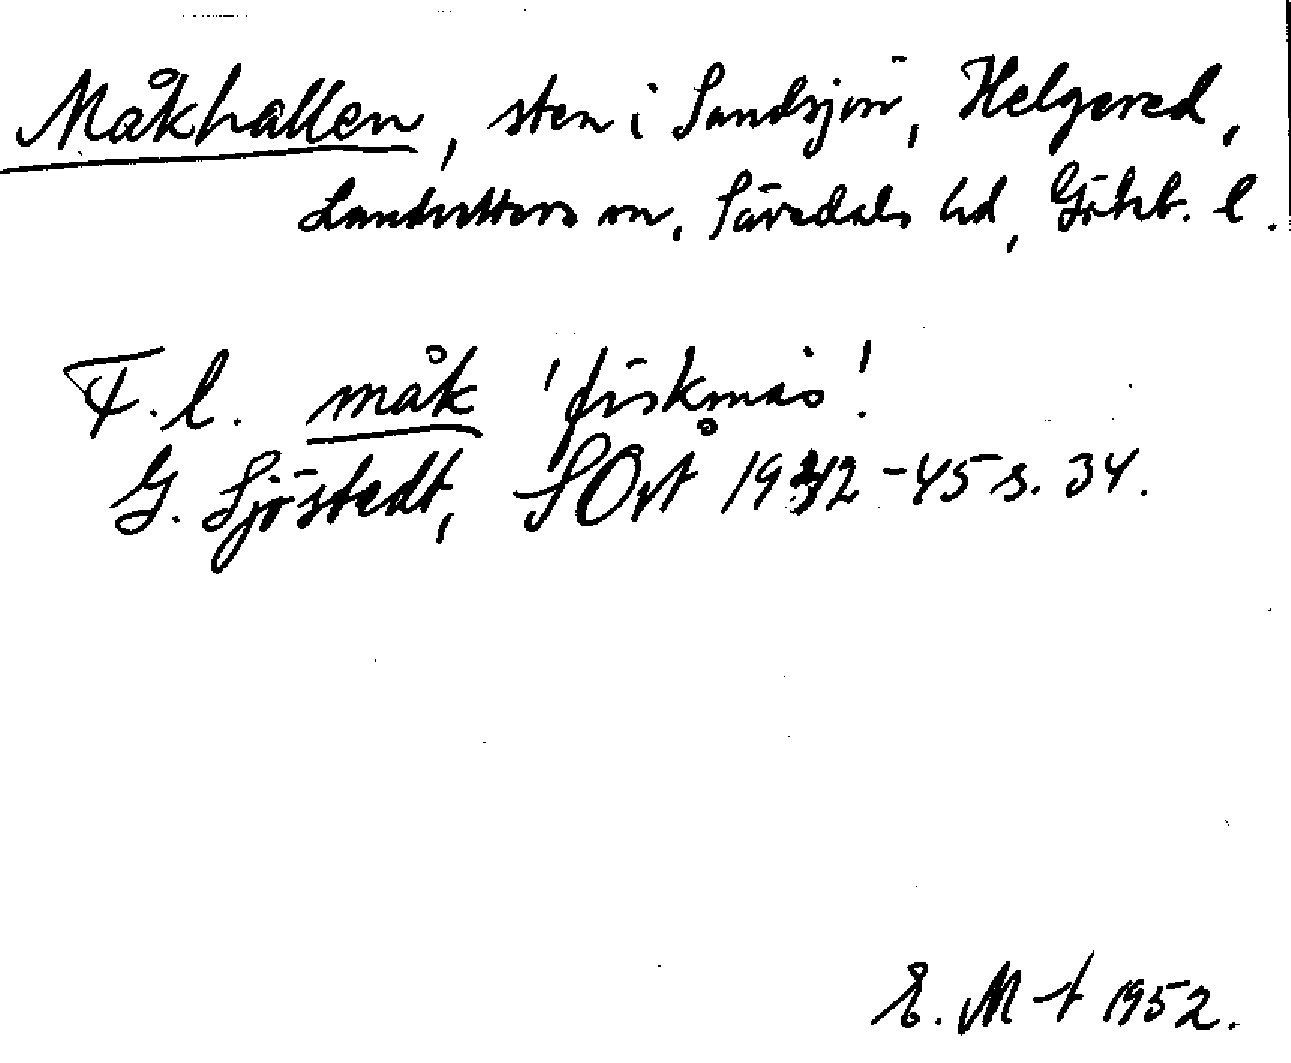 Måkhallen, sten i Sandsjön, Helgered,
Landvetters sn, Sävedals hd, Götebt. l.
F.l. måk 'fiskmås'.
G. Sjöstedt, SOrt 1942-45 s. 34.
E. M-t 1952.